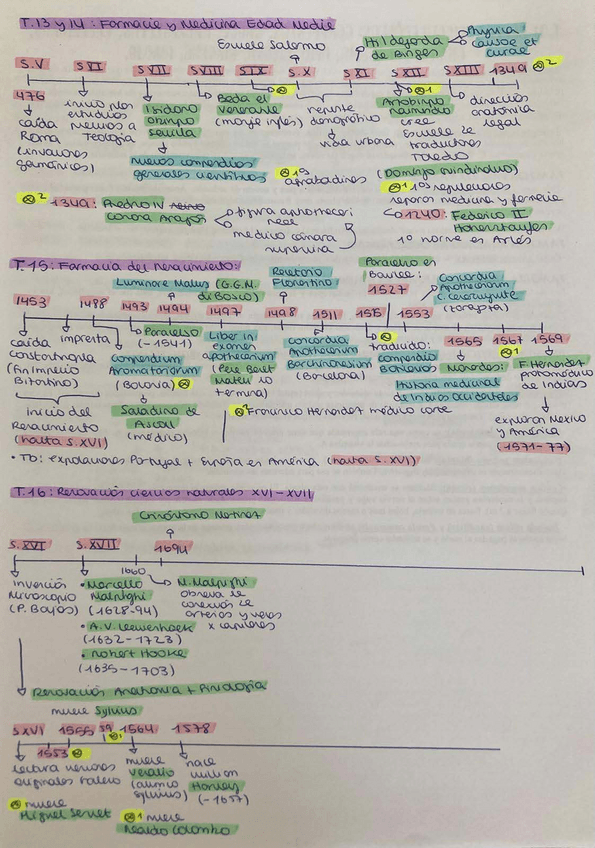 T.13 y 14: Farmacia y Medicina Edad Media
Escuela Salerno
Hildegarda de Bingen
Physica
Causae et curae
S.V S.VI S.VII S.VIII S.IX S.X S.XI S.XII S.XIII 1349 ⊗2
476
caída
Roma
(invasiones
germánicas)
Teología
Isidoro
obispo
Sevilla
nuevos compendios
generales científicos
Beda el
Venerable
(monje inglés)
⊗
repunte
demográfico
vida urbana
⊗1
Arzobispo
Raimundo
cree
Escuela de
traductores
Toledo
(Domingo Gundisalvo)
disección
anatómica
legal
⊗ 1º
⊗2 1349: Pedro IV
Corona Aragón
figura apothecari
real
médico cámara
⊗1
separan medicina y farmacia
1240: Federico II
Hohenstaufen
1ª norma es Arlés
T.15: Farmacia del Renacimiento:
Luminare Maius (G.G.M. di Bosco)
Recetario
Florentino
Paracelso en
Basilea:
1527
Concordia
Apothecariorum
C. cesaraugusta
(Zaragoza)
1453 1488 1493 1494 1497 1498 1511 1553
1565 1567 1569
⊗1
caída
Constantinopla
(fin Imperio
Bizantino)
imprenta
Compendium
Aromatariorum
(Bolonia) ⊗
Saladino de
Ascoli
(médico)
Paracelso
(-1541)
Liber in
examen
apothecarium
(Pere Benet
Mateu lo
termina)
Concordia
Apothecarium
Barchinonensium
(Barcelona)
⊗
traducido:
Monardes:
Historia medicinal
de Indias Occidentales
F. Hernández
protomédico
de Indias
exploran México
y América
(1571-77)
Inicio del
Renacimiento
(hasta S.XVI)
⊗ Francisco Hernández médico corte
• Tb: exploraciones Portugal + España es América (hasta S.XVI)
T.16: Renovación ciencias naturales XVI-XVII
Crisóstomo Martínez
S.XVI S.XVII 1694
1660
invención
microscopio
(P. Bajos)
• Marcello
Malpighi
(1628-94)
• A.V. Leewenhoek
(1632-1723)
• Robert Hooke
(1635-1703)
M. Malpighi
observa la
conexión de
arterias y venas
x capilares
Renovación Anatomía + Fisiología
muere Sylvius
S.XVI 1555 59 1564 1578
1553 ⊗
⊗1
lectura versiones
originales Galeno
muere
Vesalio
(alumno
Sylvius)
nace
William
Harvey
(-1657)
⊗ muere
Miguel Servet
⊗1 muere
Realdo Colombo